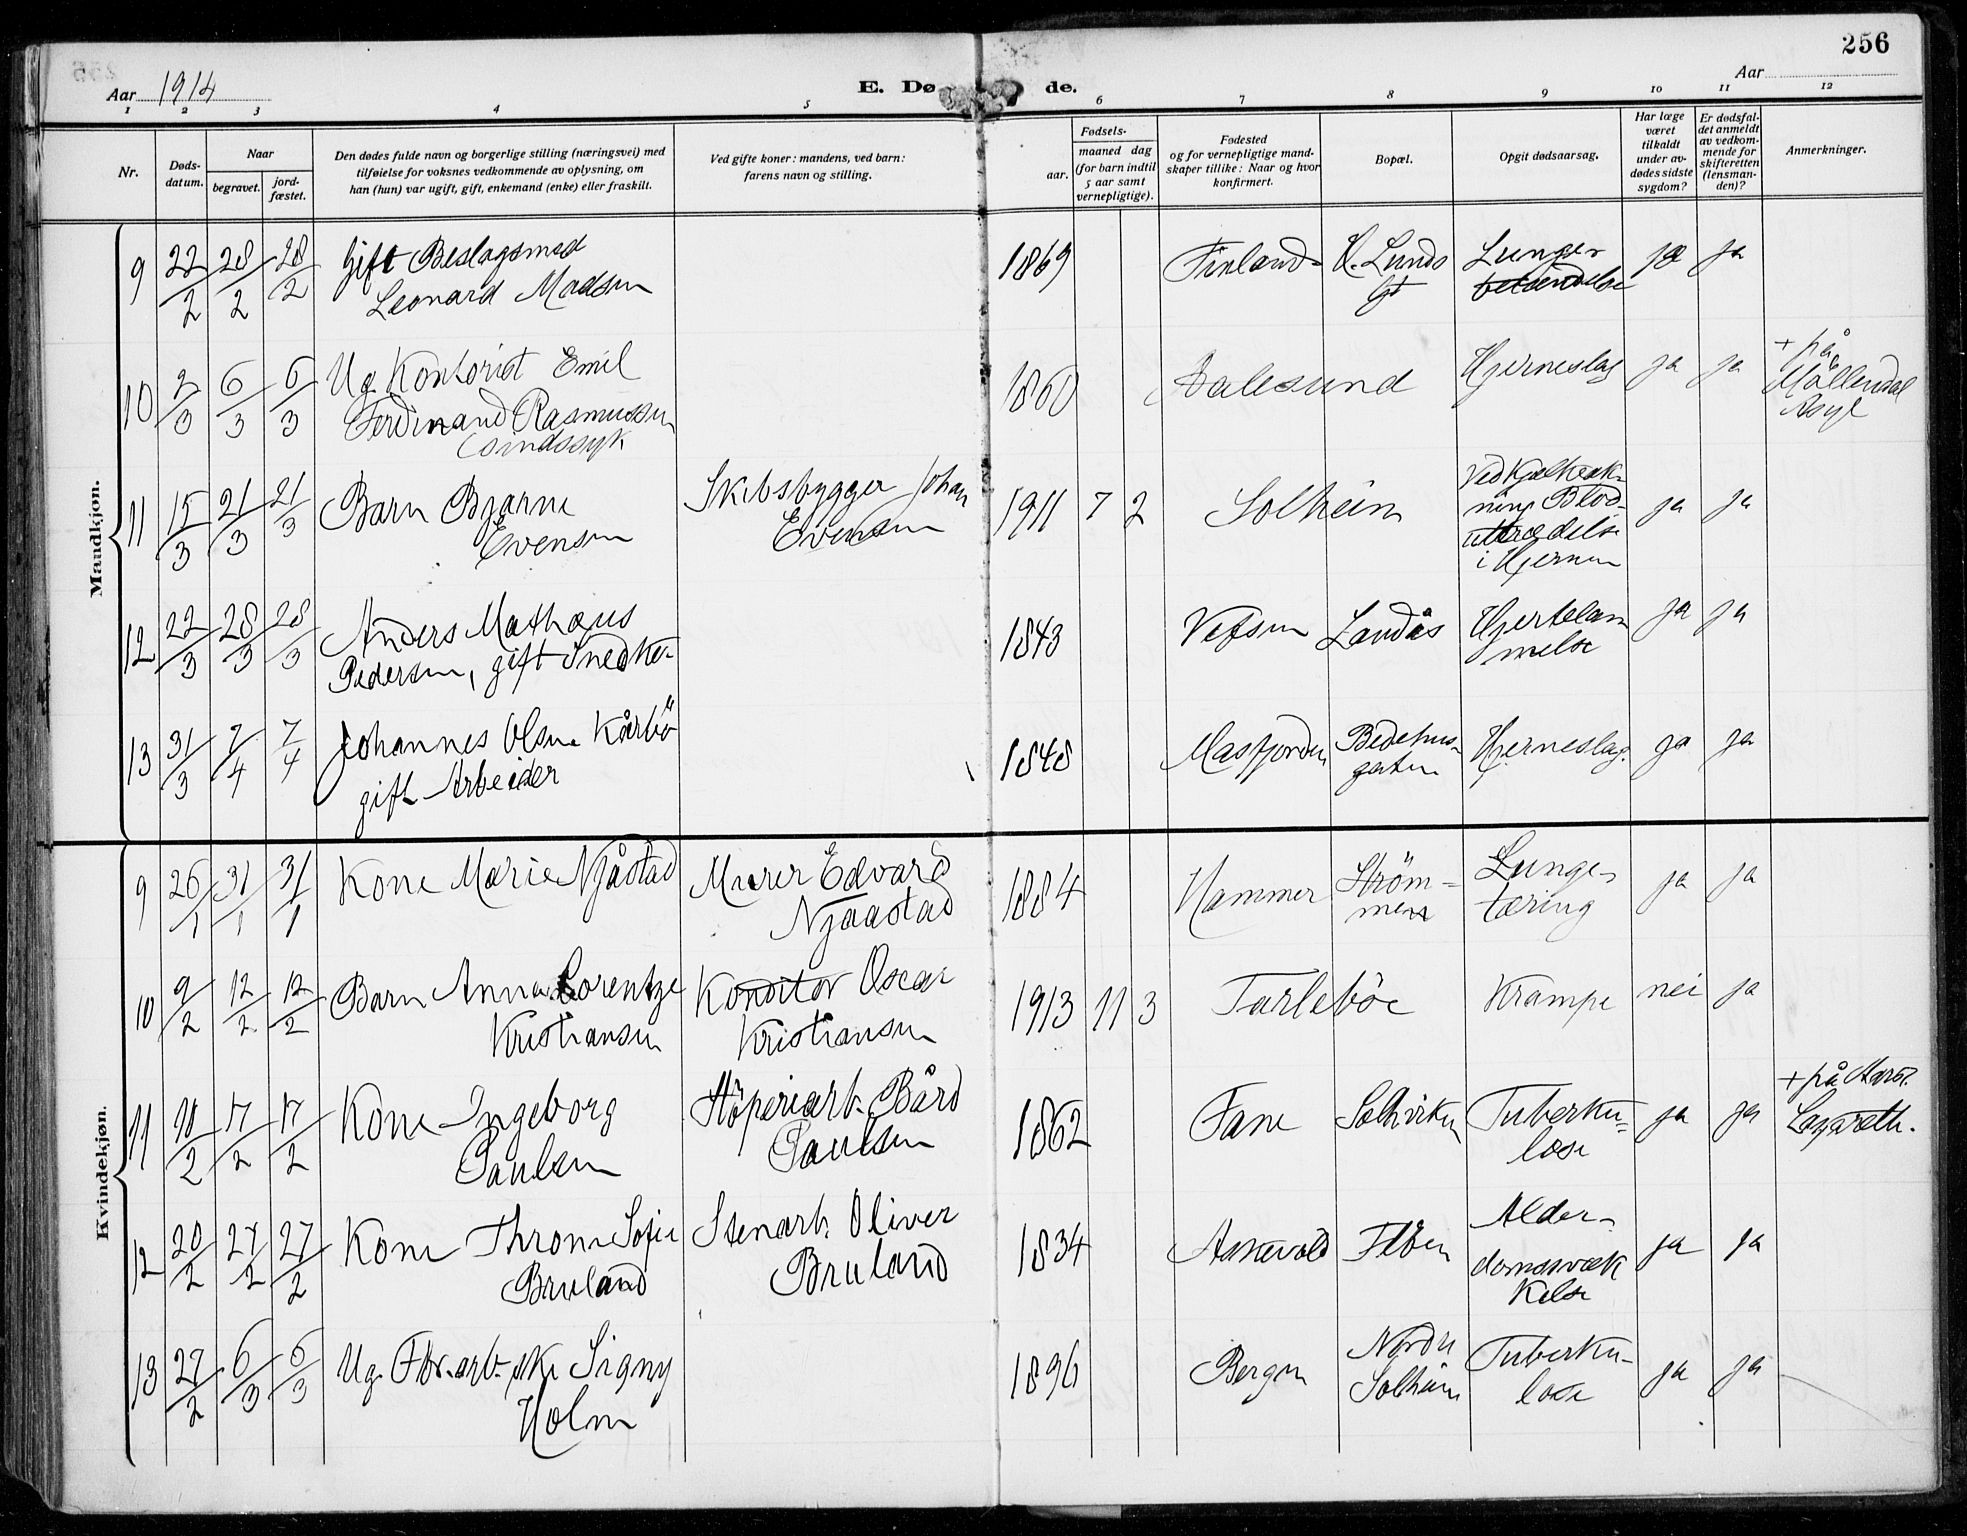 256
Aar 1914
E. Døde.
Aar
1 2 3 4 5 6 7 8 9 10 11 12
Nr.
Døds-
datum.
Naar
begravet.
jord-
fæstet.
Den dødes fulde navn og borgerlige stilling (næringsvei) med
tilføielse for voksnes vedkommende av oplysning, om
han (hun) var ugift, gift, enkemand (enke) eller fraskilt.
Ved gifte koner: mandens, ved barn:
farens navn og stilling.
Fødsels-
aar.
maaned dag
(for barn indtil
5 aar samt
vernepligtige).
Fødested
og for vernepligtige mand-
skaper tillike: Naar og hvor
konfirmert.
Bopæl.
Opgit dødsaarsag.
Har læge
været
tilkaldt
under av-
dødes sidste
sygdom?
Er dødsfal-
det anmeldt
av vedkom-
mende for
skifteretten
(lensman-
den)?
Anmerkninger.
Mandkjøn.
9 22/2 28/2 28/2 Gift Beslagsmed 1869 Finland H. Lunds Lunge- ja ja
Leonard Madsen gt betændelse
10 2/3 6/3 6/3 Ug Kontorist Emil 1860 Aalesund Hjerneslag ja ja + på
Ferdinand Rasmussen Möllendal
(sindssyk Asyl
11 15/3 21/3 21/3 Barn Bjarne Skibsbygger Johan 1911 7 2 Solheim Ved Kjælkeak- ja ja
Evensen Evensen ning Blod-
uttrædelse
i Hjernen
12 22/3 28/3 28/3 Anders Mathæus 1843 Vefsen Landås Hjertelam ja ja
Pedersen, gift Snedker melse
13 31/3 7/4 7/4 Johannes Olsen Kårbö 1848 Masfjorden Bedehus- Hjerneslag. ja ja
gift Arbeider gaten
Kvindekjøn.
9 26/1 31/1 31/1 Kone Marie Njåstad Murer Edvard 1884 Hammer Ström- Lunge- ja ja
Njaastad men tæring
10 9/2 12/2 12/2 Barn Anna Lorentze Konditor Oscar 1913 11 3 Tarleböe Krampe nei ja
Kristiansen Kristiansen
11 10/2 17/2 17/2 Kone Ingeborg Stöperiarb. Bård 1862 Fane Solhviken Tuberku- ja ja + på Aarst.
Paulsen Paulsen lose Lazareth.
12 20/2 27/2 27/2 Kone Throne Sofie Stenarb. Oliver 1834 Askevold Flöen Alder- ja ja
Bruland Bruland domssvæk
kelse
13 27/2 6/3 6/3 Ug. Fbr. arb. ske Signy 1896 Bergen Nordre Tuberku- ja ja
Holm Solheim lose